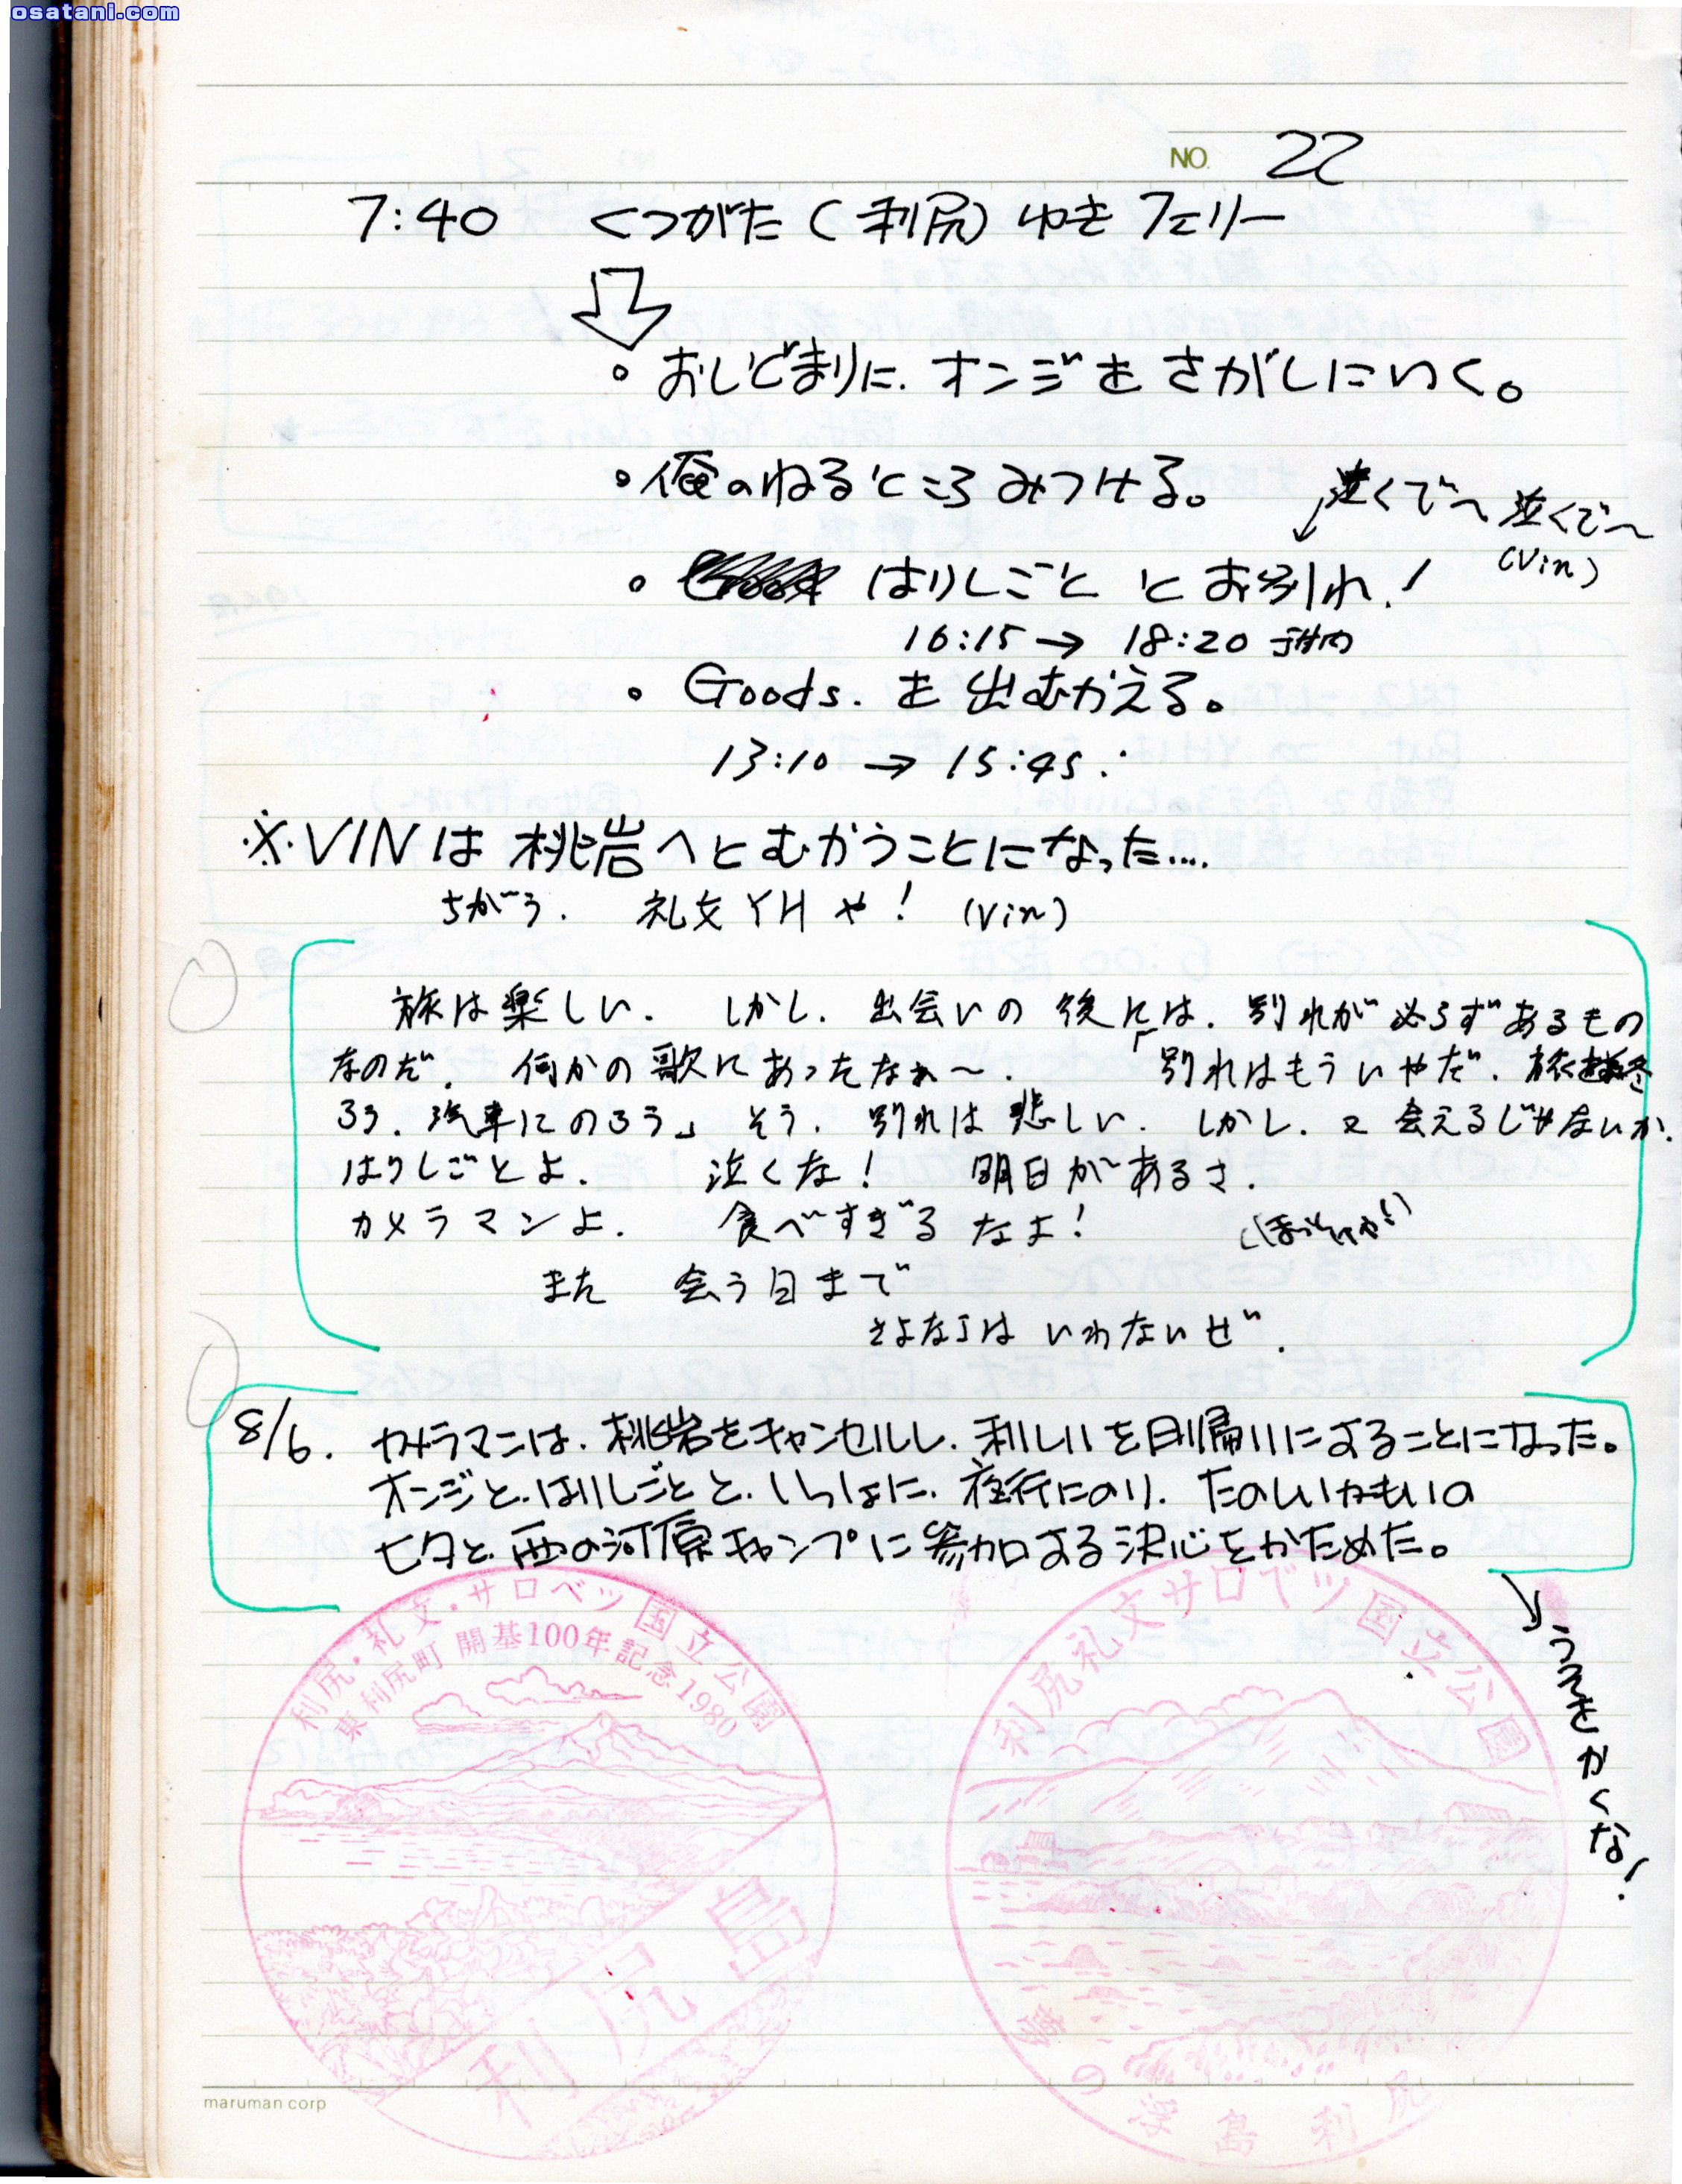 osatani.com
NO. 22
7:40 くつがた(利尻)ゆきフェリー
。おしどまりに. オンジをさがしにいく。
。俺のねるところみつける。
泣くで〜 泣くで〜
(Vin)
。はりしごと とお別れ!
16:15→ 18:20 稚内
。Goods. を出むかえる。
13:10 → 15:45.
※VINは桃岩へとむかうことになった....
ちがう. 礼文YHや! (Vin)
旅は楽しい. しかし. 出会いの後には. 別れが必らずあるもの
なのだ. 何かの歌にあったなぁ〜. 「別れはもういやだ. 旅
ろう. 汽車にのろう」 そう. 別れは悲しい. しかし. 又会えるじゃないか.
はりしごとよ. 泣くな! 明日があるさ.
カメラマンよ. 食べすぎるなよ!
また 会う日まで
さよならは いわないぜ.
8/6. カメラマンは. 桃岩をキャンセルし. 利しりを日帰りにすることになった。
オンジと. はりしごとと. いっしょに. 夜行にのり. たのしいかもいの
七夕と. 西の河原キャンプに参加する決心をかためた。
うそをかくな!
利尻・礼文・サロベツ国立公園
東利尻町 開基100年記念1980
利尻島
利尻礼文サロベツ国立公園
の浮島利尻
maruman corp